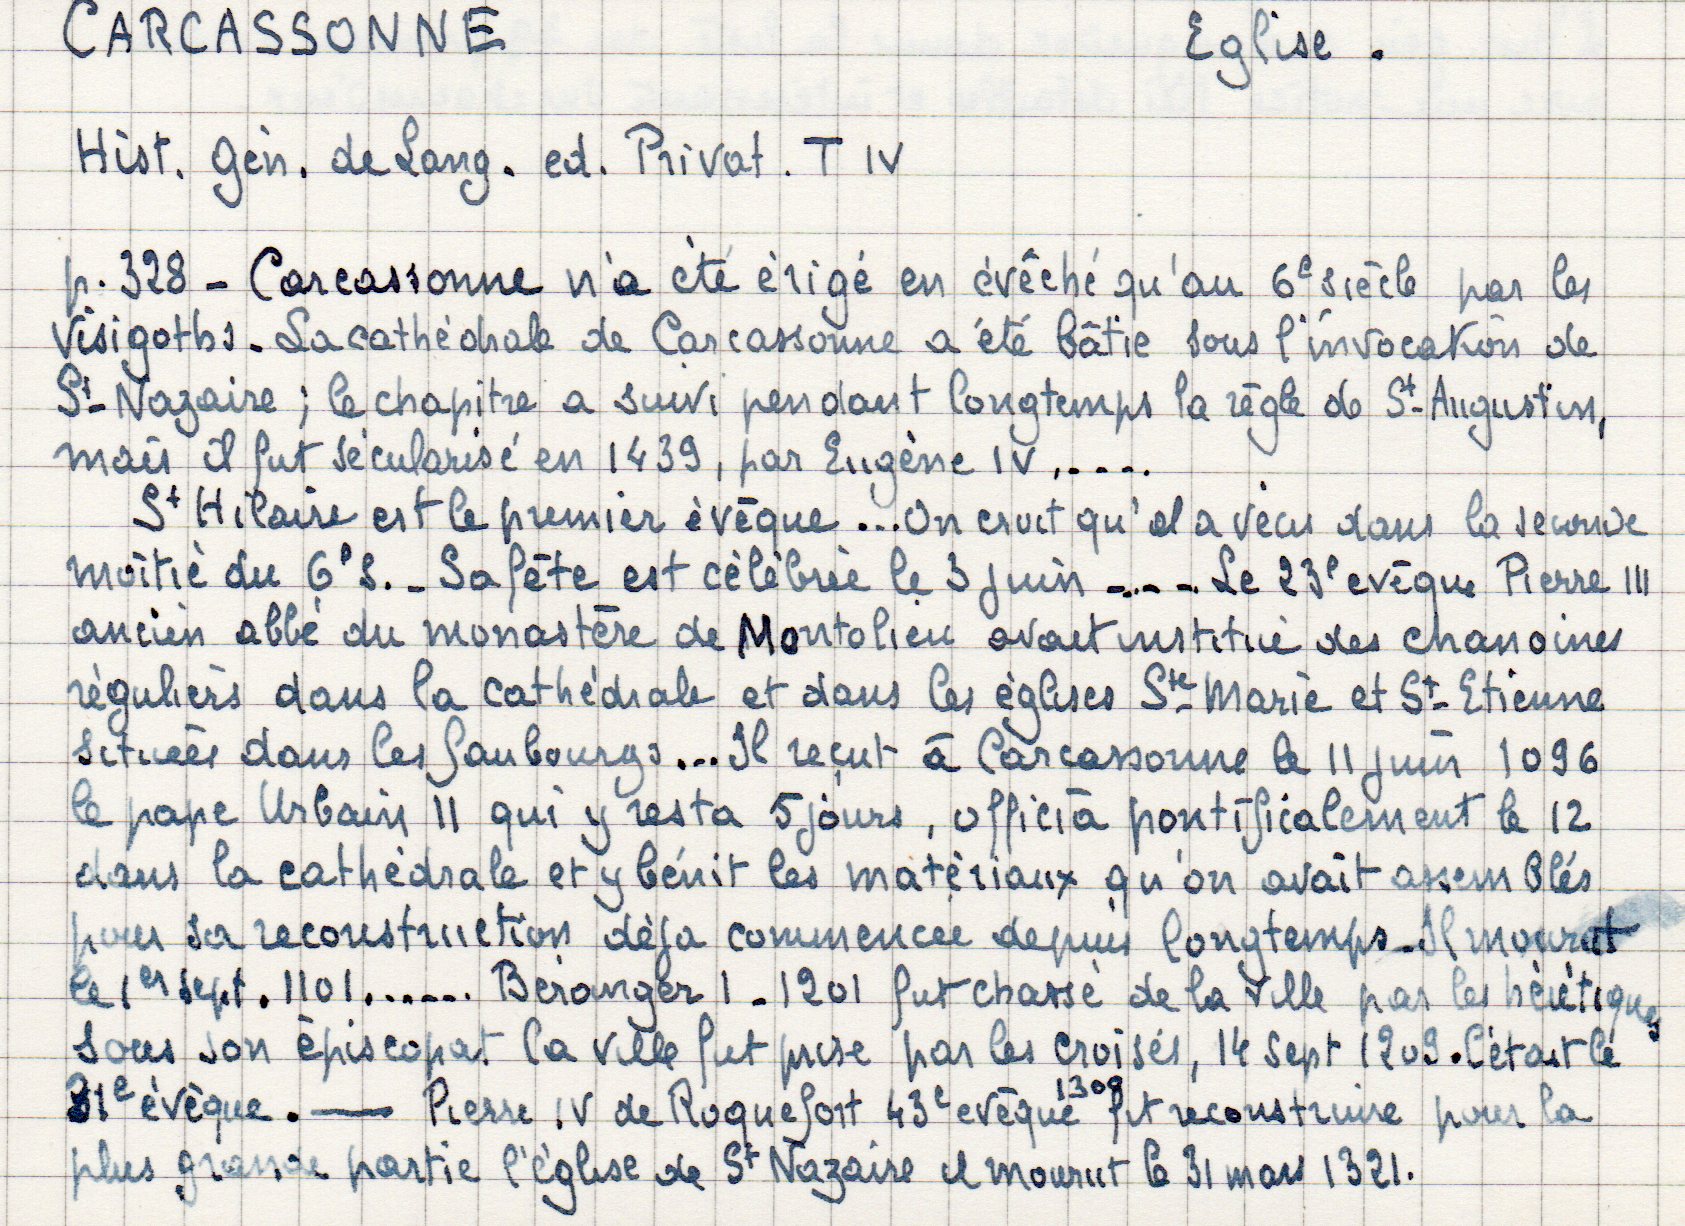 CARCASSONNE Eglise.
Hist. Gén. de Lang. ed. Privat. T IV
p. 328 - Carcassonne n'a été érigé en évêché qu'au 6e siècle par les
Visigoths. La cathédrale de Carcassonne a été bâtie sous l'invocation de
St-Nazaire ; le chapitre a suivi pendant longtemps la règle de St-Augustin,
mais il fut sécularisé en 1439, par Eugène IV,....
St Hilaire est le premier évêque ...On croit qu'il a vécu dans la seconde
moitié du 6e s. - Sa fête est célébrée le 3 juin ---- Le 23e evêque Pierre III
ancien abbé du monastère de Montolieu avait institué des chanoines
réguliers dans la cathédrale et dans les églises Ste-Marie et St-Etienne
situées dans les faubourgs...Il reçut à Carcassonne le 11 juin 1096
le pape Urbain II qui y resta 5 jours, officia pontificalement le 12
dans la cathédrale et y bénit les matériaux qu'on avait assemblés
pour sa reconstruction déja commencée depuis longtemps - Il mourut
le 1er sept. 1101...... Béranger I - 1201 fut chassé de la ville par les hérétiques
sous son épiscopat la ville fut prise par les croisés, 14 sept 1209. C'était le
31e évêque. — Pierre IV de Roquefort 43e evêque 1309 fit reconstruire pour la
plus grande partie l'église de St Nazaire il mourut le 31 mars 1321.